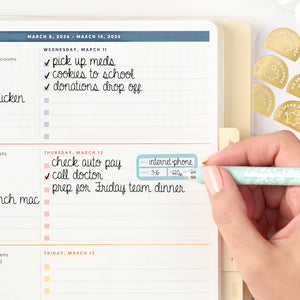 MARCH 8, 2026 - MARCH 14, 2026
WEDNESDAY, MARCH 11
pick up meds
cookies to school
donations drop off
icken
THURSDAY, MARCH 12
check auto pay
internet+phone
call doctor
3-6
120
prep for Friday team dinner
nch mac
FRIDAY, MARCH 13